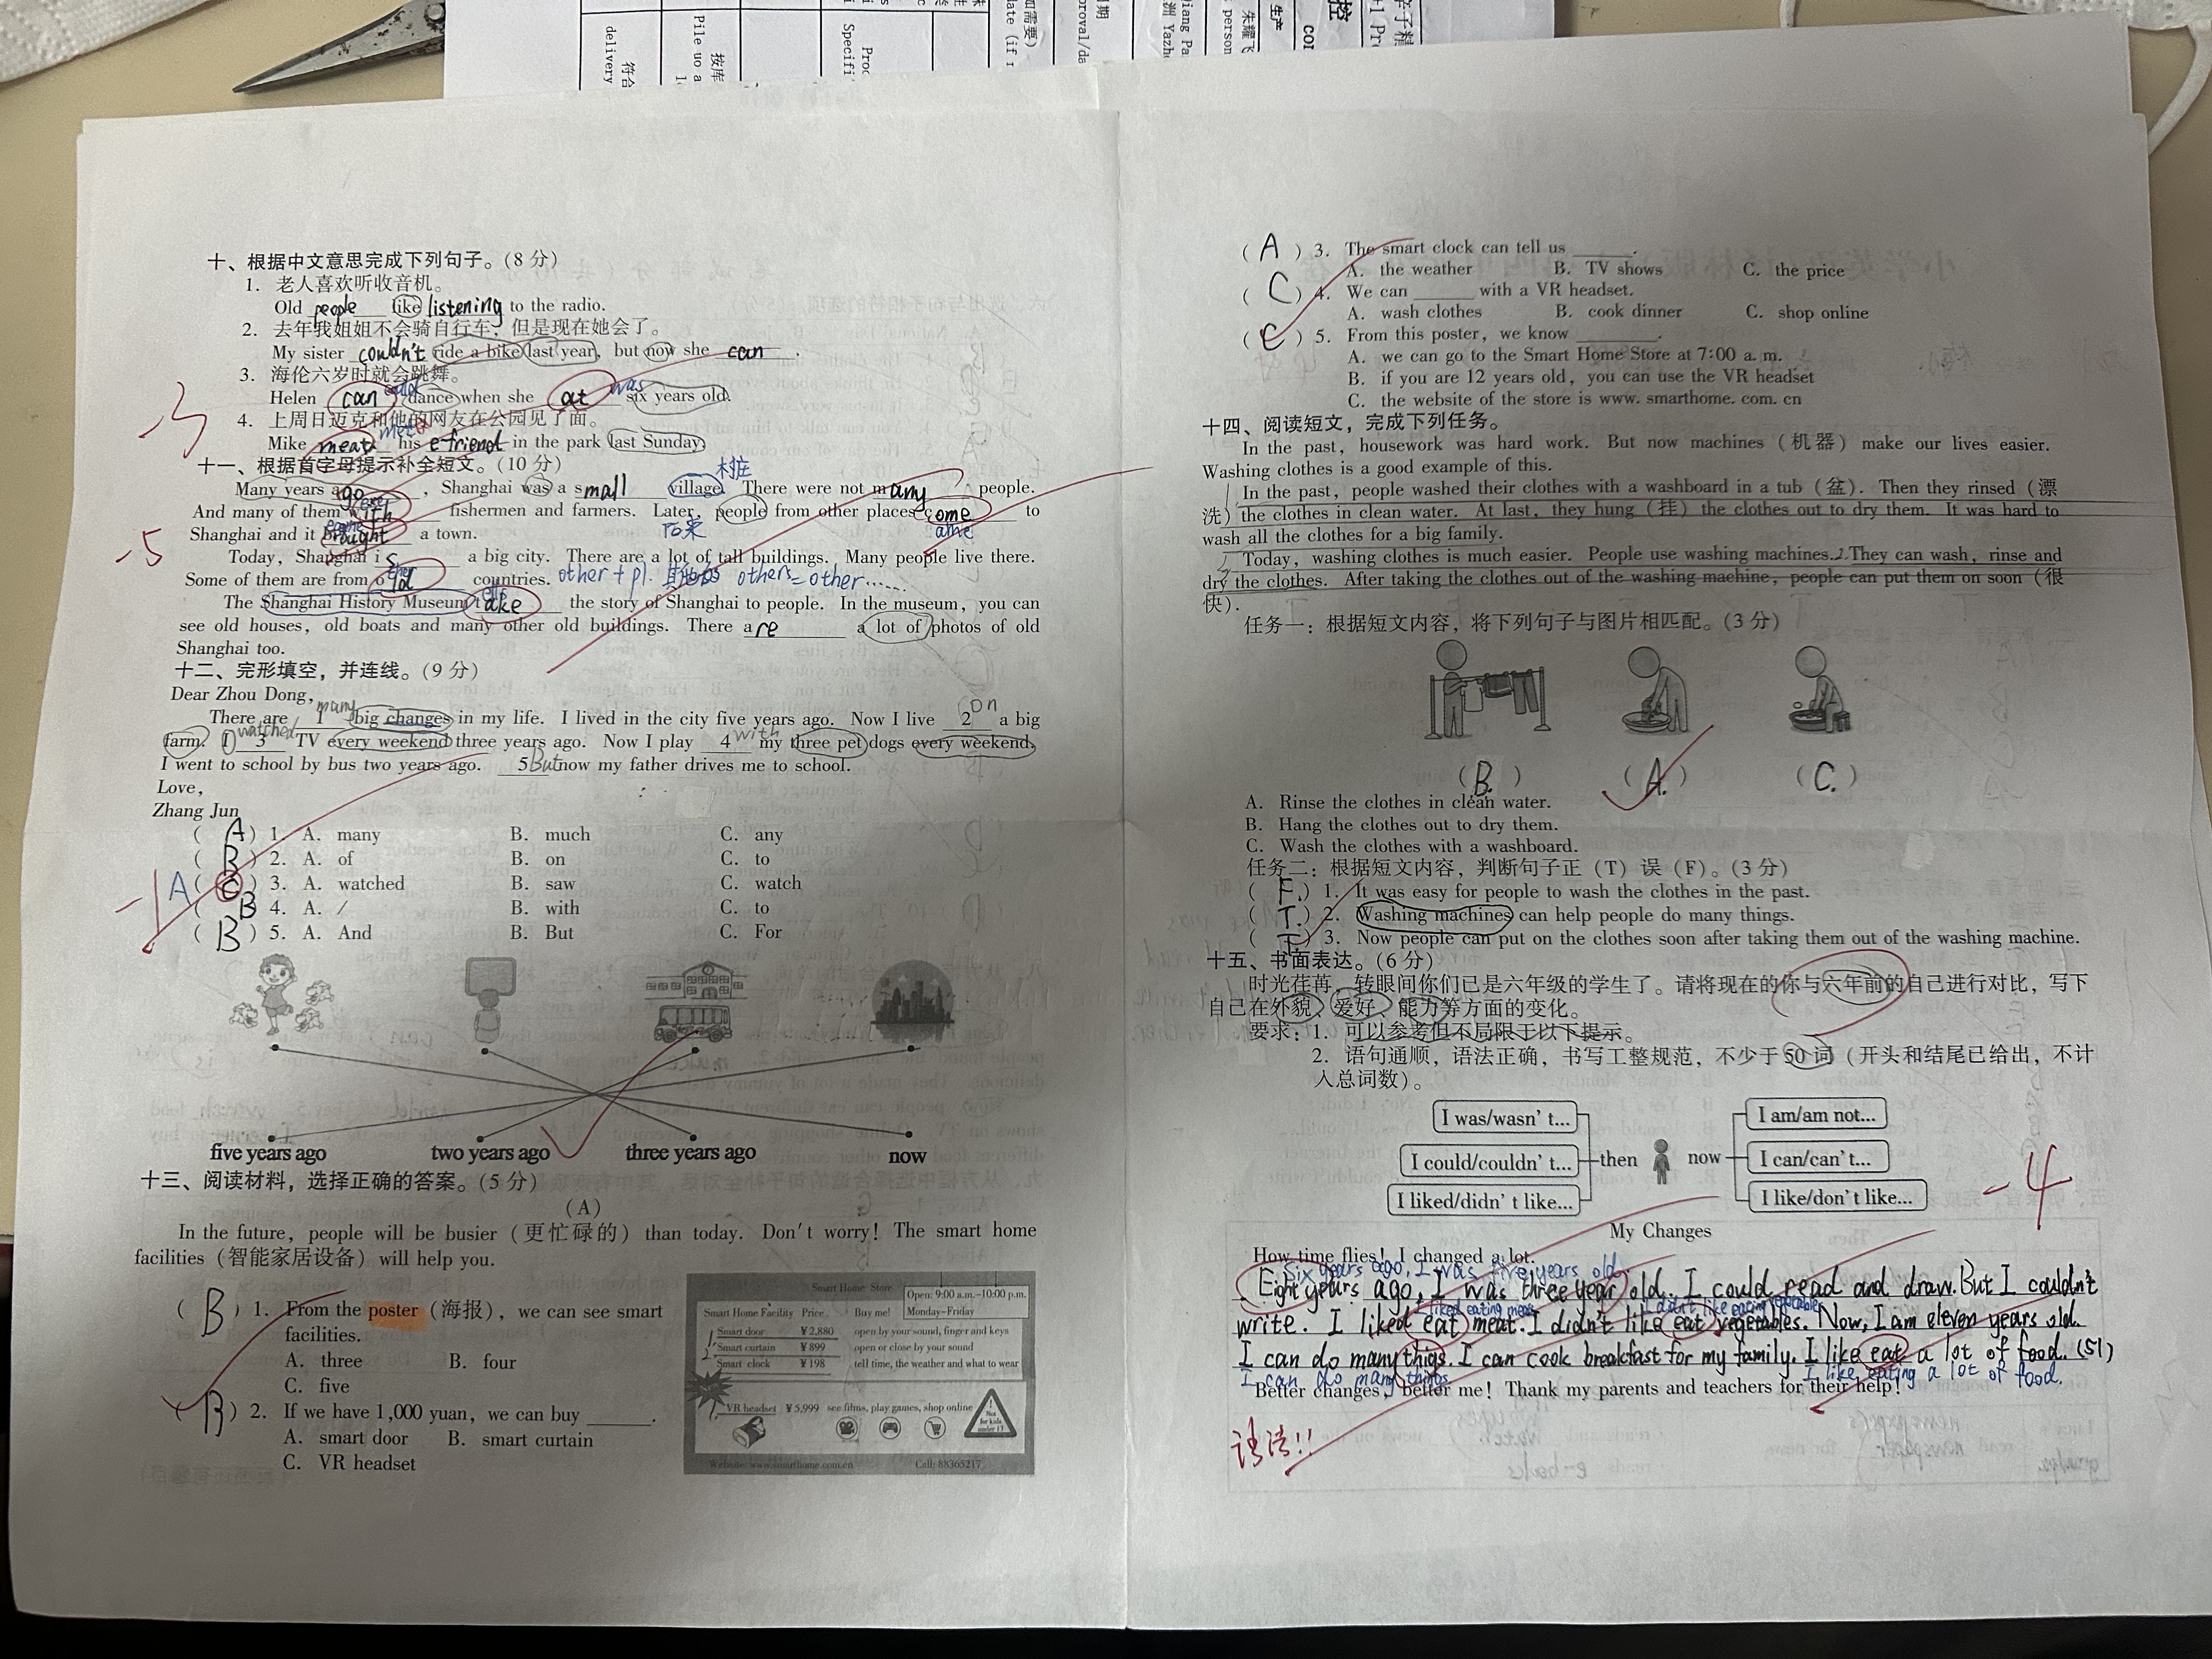 十、根据中文意思完成下列句子。(8 分)
1. 老人喜欢听收音机。
Old people like listening to the radio.
2. 去年我姐姐不会骑自行车，但是现在她会了。
My sister couldn't ride a bike last year, but now she can.
3. 海伦六岁时就会跳舞。
could was
Helen can dance when she at six years old.
4. 上周日迈克和他的网友在公园见了面。
met
Mike meat his e-friend in the park last Sunday.
-3
十一、根据首字母提示补全短文。(10 分)
村庄
Many years ago, Shanghai was a small village. There were not many people.
And many of them with fishermen and farmers. Later, people from other places come to
后来 ame
Shanghai and it brought a town.
-5
Today, Shanghai is a big city. There are a lot of tall buildings. Many people live there.
Some of them are from old countries. other + pl. 其他的 others = other......
ther
The Shanghai History Museum take the story of Shanghai to people. In the museum, you can
ell
see old houses, old boats and many other old buildings. There are a lot of photos of old
Shanghai too.
十二、完形填空，并连线。(9 分)
Dear Zhou Dong,
There are 1 many big changes in my life. I lived in the city five years ago. Now I live 2 on a big
farm. I 3 watched TV every weekend three years ago. Now I play 4 with my three pet dogs every weekend.
I went to school by bus two years ago. 5 But now my father drives me to school.
Love,
Zhang Jun
( A ) 1. A. many B. much C. any
( B ) 2. A. of B. on C. to
-1 A ( C ) 3. A. watched B. saw C. watch
( B ) 4. A. / B. with C. to
( B ) 5. A. And B. But C. For
five years ago two years ago three years ago now
十三、阅读材料，选择正确的答案。(5 分)
(A)
In the future, people will be busier (更忙碌的) than today. Don't worry! The smart home
facilities (智能家居设备) will help you.
( B ) 1. From the poster (海报), we can see smart
facilities.
A. three B. four
C. five
( B ) 2. If we have 1,000 yuan, we can buy ______.
A. smart door B. smart curtain
C. VR headset
Smart Home Store
Open: 9:00 a.m.–10:00 p.m.
Monday–Friday
Smart Home Facility Price Buy me!
Smart door ¥2,880 open by your sound, finger and keys
Smart curtain ¥899 open or close by your sound
Smart clock ¥198 tell time, the weather and what to wear
VR headset ¥5,999 see films, play games, shop online
Not for kids under 13
Website: www.smarthome.com.cn Call: 88365217
( A ) 3. The smart clock can tell us ______.
A. the weather B. TV shows C. the price
( C ) 4. We can ______ with a VR headset.
A. wash clothes B. cook dinner C. shop online
( C ) 5. From this poster, we know ______.
A. we can go to the Smart Home Store at 7:00 a. m.
B. if you are 12 years old, you can use the VR headset
C. the website of the store is www. smarthome. com. cn
十四、阅读短文，完成下列任务。
In the past, housework was hard work. But now machines (机器) make our lives easier.
Washing clothes is a good example of this.
In the past, people washed their clothes with a washboard in a tub (盆). Then they rinsed (漂
洗) the clothes in clean water. At last, they hung (挂) the clothes out to dry them. It was hard to
wash all the clothes for a big family.
Today, washing clothes is much easier. People use washing machines. They can wash, rinse and
dry the clothes. After taking the clothes out of the washing machine, people can put them on soon (很
快).
任务一：根据短文内容，将下列句子与图片相匹配。(3 分)
(B.) (A.) (C.)
A. Rinse the clothes in clean water.
B. Hang the clothes out to dry them.
C. Wash the clothes with a washboard.
任务二：根据短文内容，判断句子正 (T) 误 (F)。(3 分)
( F. ) 1. It was easy for people to wash the clothes in the past.
( T. ) 2. Washing machines can help people do many things.
( T. ) 3. Now people can put on the clothes soon after taking them out of the washing machine.
十五、书面表达。(6 分)
时光荏苒，转眼间你们已是六年级的学生了。请将现在的你与六年前的自己进行对比，写下
自己在外貌、爱好、能力等方面的变化。
要求：1. 可以参考但不局限于以下提示。
2. 语句通顺，语法正确，书写工整规范，不少于 50 词（开头和结尾已给出，不计
入总词数）。
I was/wasn't... I am/am not...
I could/couldn't... then now I can/can't...
I liked/didn't like... I like/don't like...
-4
My Changes
How time flies! I changed a lot.
Six years ago, I was five years old.
Eight years ago, I was three year old. I could read and draw. But I couldn't
I liked eating meat. I didn't like eating vegetables.
write. I liked eat meat. I didn't like eat vegetables. Now, I am eleven years old.
I can do many thigs. I can cook breakfast for my family. I like eat a lot of food. (51)
I can do many things. I like eating a lot of food.
Better changes, better me! Thank my parents and teachers for their help!
语法!!